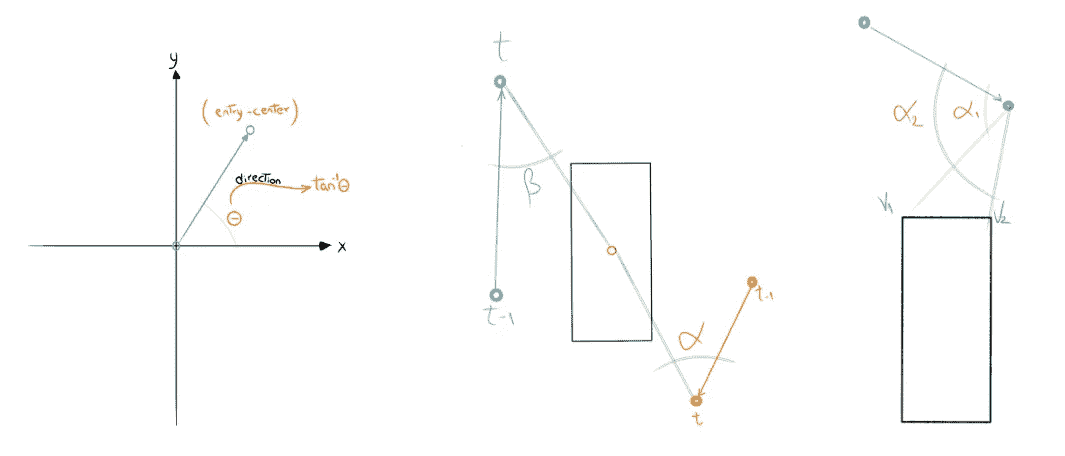 y
(entry-center)
direction
tan⁻¹θ
θ
x
t
β
t-1
t-1
α
t
α₂
α₁
V₁
V₂